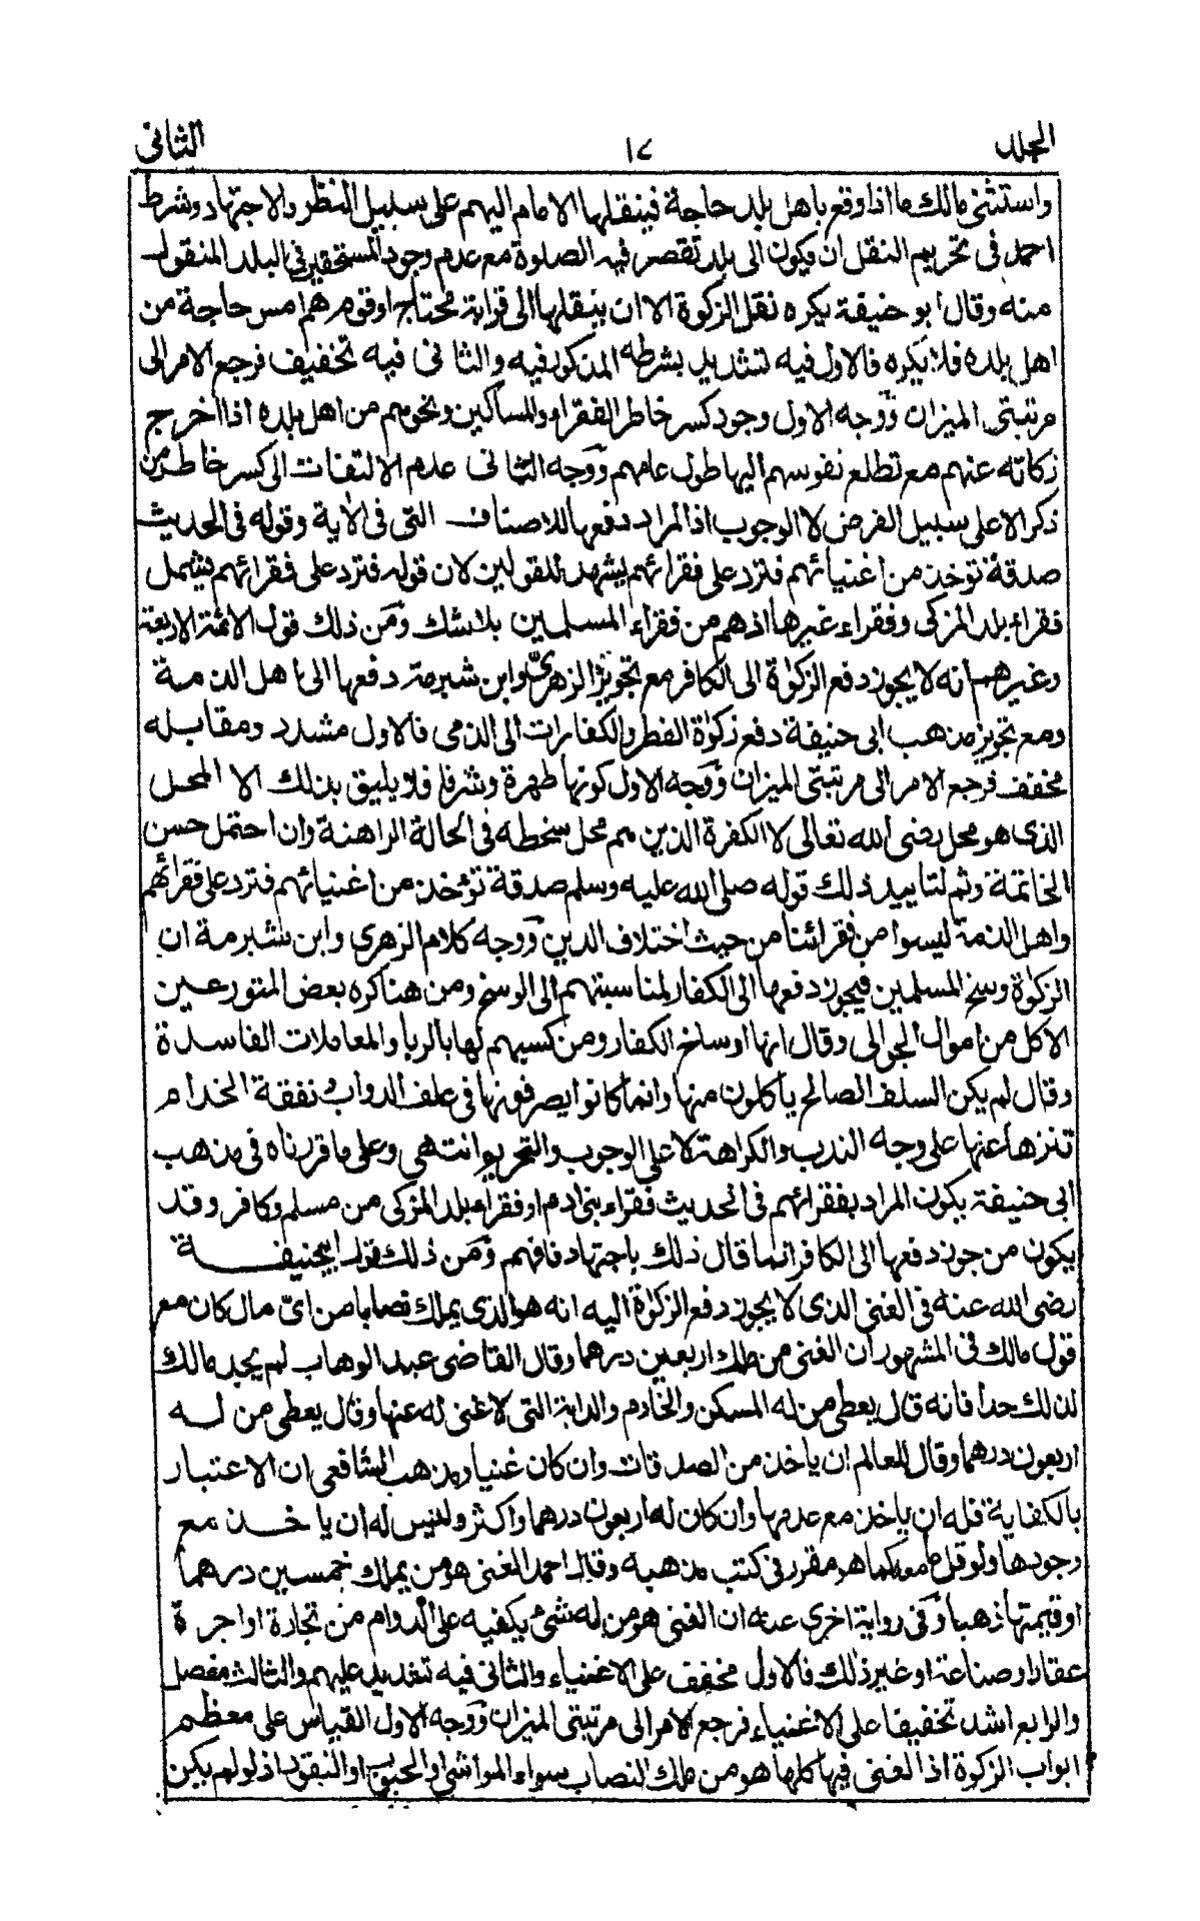 المجلد ١٧ الثانى
واستثنى مالك ما اذا وقع باهل بلد حاجة فينقلها الامام اليهم على سبيل النظر والاجتهاد وشرط
احمد فى تحريم النقل ان يكون الى بلد تقصر فيه الصلوة مع عدم وجود المستحقين فى البلد المنقول
منه وقال ابو حنيفة يكره نقل الزكوة الا ان ينقلها الى قرابة محتاج اوقوم هم امس حاجة من
اهل بلده فلا يكره فالاول فيه تشديد بشرطه المذكور فيه والثانى فيه تخفيف فرجع الامر الى
مرتبتى الميزان ووجه الاول وجود كسر خاطر الفقراء والمساكين ونحوهم من اهل بلده اذا اخرج
زكاته عنهم مع تطلع نفوسهم اليها طول عامهم ووجه الثانى عدم الالتفات الى كسر خاطر من
ذكر الا على سبيل الفرض لا الوجوب اذ المراد دفعها للاصناف التى فى الاية وقوله فى الحديث
صدقة توخذ من اغنيائهم فترد على فقرائهم يشهد للقولين لان قوله فترد على فقرائهم يشمل
فقراء بلد المزكى وفقراء غيرها اذ هم من فقراء المسلمين بلا شك ومن ذلك قول الائمة الاربعة
وغيرهم انه لا يجوز دفع الزكوة الى الكافر مع تجويز الزهرى وابن شبرمة دفعها الى اهل الذمة
ومع تجويز مذهب ابى حنيفة دفع زكوة الفطر والكفارات الى الذمى فالاول مشدد ومقابله
مخفف فرجع الامر الى مرتبتى الميزان ووجه الاول كونها طهرة وشرفا فلا يليق بذلك الا المحل
الذى هو محل رضى الله تعالى لا الكفرة الذين هم محل سخطه فى الحالة الراهنة وان احتمل حسن
الخاتمة وثم لتاييد ذلك قوله صلى الله عليه وسلم صدقة تؤخذ من اغنيائهم فترد على فقرائهم
واهل الذمة ليسوا من فقرائنا من حيث اختلاف الدين ووجه كلام الزهرى وابن شبرمة ان
الزكوة وسخ المسلمين فيجوز دفعها الى الكفار لمناسبتهم الى الوسخ ومن هنا كره بعض المتورعين
الاكل من اموال الجوالى وقال انها اوساخ الكفار ومن كسبهم لها بالربا والمعاملات الفاسدة
وقال لم يكن السلف الصالح ياكلون منها وانما كانوا يصرفونها فى علف الدواب ونفقة الخدام
تنزها عنها على وجه الندب والكراهة لا على الوجوب والتحريم انتهى وعلى ما قررناه فى مذهب
ابى حنيفة يكون المراد بفقرائهم فى الحديث فقراء بنى ادم او فقراء بلد المزكى من مسلم وكافر وقد
يكون من جوز دفعها الى الكافر انما قال ذلك باجتهاد فافهم ومن ذلك قول ابيحنيفة
رضى الله عنه فى الغنى الذى لا يجوز دفع الزكوة اليه انه هو الذى يملك نصابا من اىّ مال كان مع
قول مالك فى المشهور ان الغنى من ملك اربعين درهما وقال القاضى عبد الوهاب لم يجد مالك
لذلك حدا فانه قال يعطى من له المسكن والخادم والدابة التى لا غنى له عنها وقال يعطى من له
اربعون درهما وقال للعالم ان ياخذ من الصدقات وان كان غنيا ومذهب الشافعى ان الاعتبار
بالكفاية فله ان ياخذ مع عدمها وان كان له اربعون درهما واكثر وليس له ان ياخذ مع
وجودها ولو قل ما معه كما هو مقرر فى كتب مذهبه وقال احمد الغنى هو من يملك خمسين درهما
او قيمتها ذهبا وفى رواية اخرى عنه ان الغنى هو من له شئ يكفيه على الدوام من تجارة او اجرة
عقار او صناعة او غير ذلك فالاول مخفف على الاغنياء والثانى فيه تشديد عليهم والثالث مفصل
والرابع اشد تخفيفا على الاغنياء فرجع الامر الى مرتبتى الميزان ووجه الاول القياس على معظم
ابواب الزكوة اذ الغنى فيها كلها هو من ملك النصاب سواء المواشى او الحبوب او النقود اذ لو لم يكن